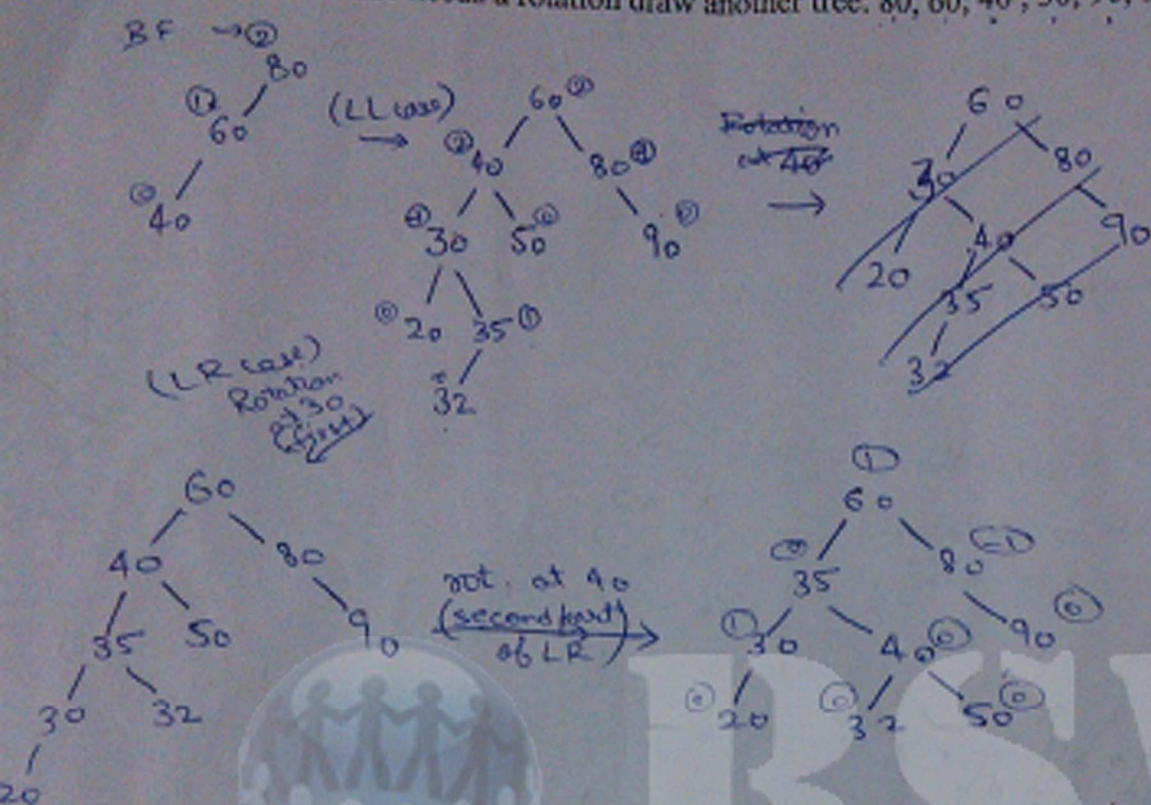 a rotation draw another tree. 80, 60, 40, 
BF → ②
80
① 60
⓪ 40
(LL case)
→
60 ②
② 40 80
30 50 ⓪ 90 ⓪
⓪ 20 35 ①
32
Rotation
at 40
→
60
30 80
20 40 90
35 50
32
(LR case)
Rotation
at 30
(first)
60
40 80
35 50 90
30 32
20
rot. at 40
(second part)
of LR)
①
60
35 80 (-1)
① 30 40 ⓪ 90 ⓪
⓪ 20 ⓪ 32 50 ⓪